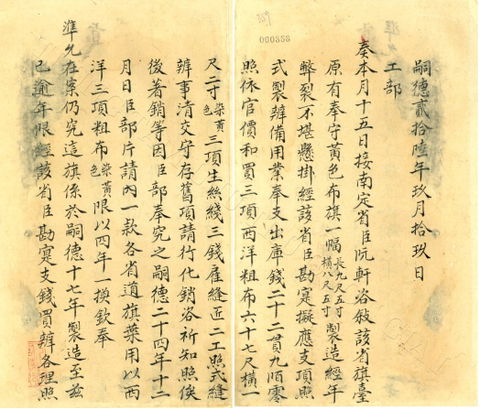 嗣德貳拾陸年玖月拾玖日
工部
奏本月十五日接南定省臣阮軒咨敘該省旗臺
原有奉守黃色布旗一幅長九尺五寸橫八尺五寸製造經年
弊裂不堪懸掛經該省臣勘寔擬應支項照
式製辦備用業奉支出庫錢二十二貫九零
照依官價和買三項西洋粗布六十七尺橫一
尺二寸染黃色三項生絲綫三錢雇縫近二工照式縫
辦事清交守存舊項請行化銷咨祈知照俟
後著銷等因臣部奉究之嗣德二十四年十二
月日臣部片請內一款各省道旗葉用以西
洋三項粗布染黃色限以四年一換欽奉
準允在案仍究這旗係於嗣德十七年製造至茲
已逾年限經該省臣勘寔支錢買辦各理照